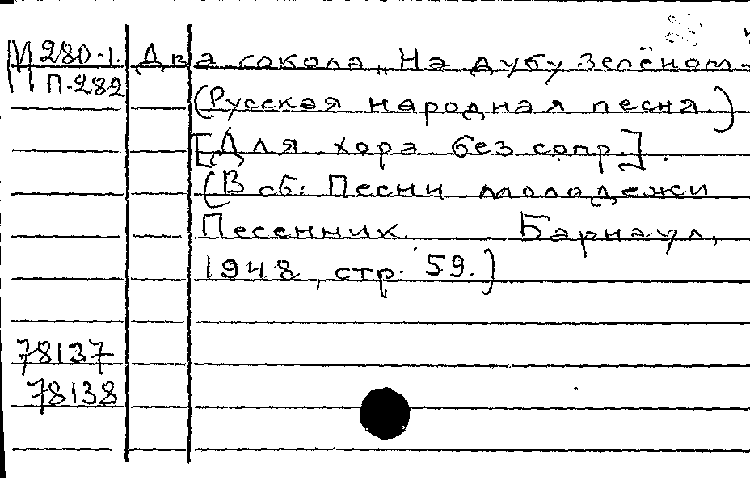 М 280-1. Два сокола. На дубу зелёном-
П-282
(Русская народная песня.)
[Для хора без сопр.].
(В сб: Песни молодежи
Песенник. Барнаул,
1948, стр. 59.)
78137
78138